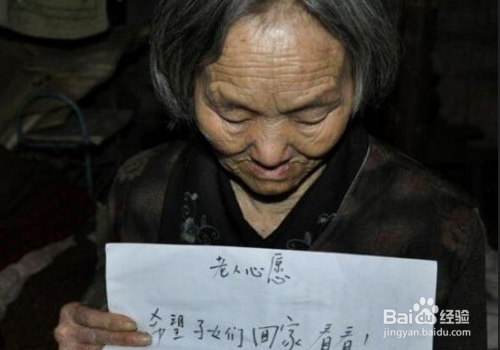 老人心愿
希望子女们回家看看！
Baidu 经验
jingyan.baidu.com